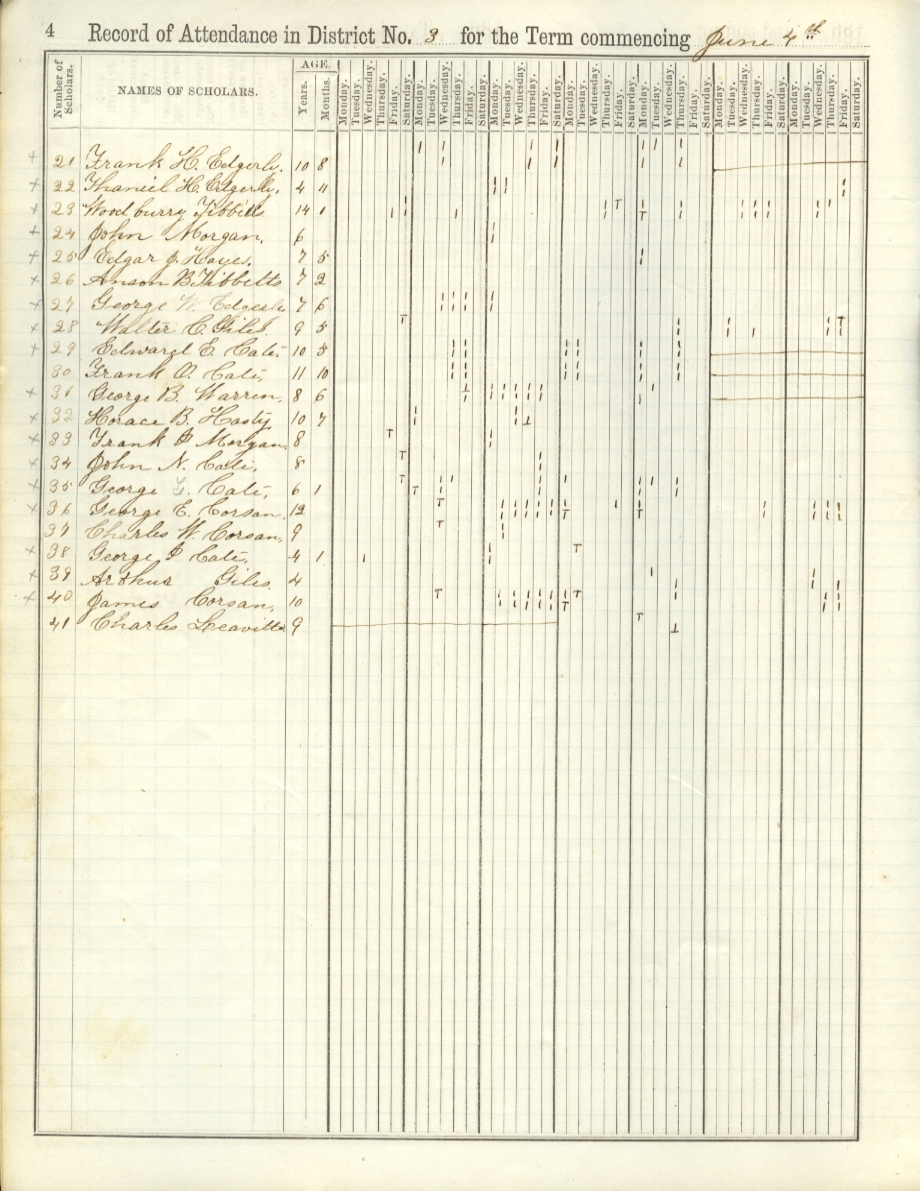 4 Record of Attendance in District No. 3 for the Term commencing June 4th
Number of Scholars. NAMES OF SCHOLARS. AGE. Years. Months. Monday. Tuesday. Wednesday. Thursday. Friday. Saturday. Monday. Tuesday. Wednesday. Thursday. Friday. Saturday. Monday. Tuesday. Wednesday. Thursday. Friday. Saturday. Monday. Tuesday. Wednesday. Thursday. Friday. Saturday. Monday. Tuesday. Wednesday. Thursday. Friday. Saturday. Monday. Tuesday. Wednesday. Thursday. Friday. Saturday. Monday. Tuesday. Wednesday. Thursday. Friday. Saturday.
+ 21 Frank H. Edgerly. 10 8
+ 22 Thaniel H. Edgerly. 4 11
+ 23 Woodburry Tibbetts 14 1
+ 24 John Morgan. 6
+ 25 Edgar J. Hayes. 7 5
+ 26 Anson B. Tibbetts 7 2
+ 27 George W. Edgerly 7 6
+ 28 Walter C. Giles. 9 5
+ 29 Edward E. Cate. 10 5
30 Frank O. Cate. 11 10
+ 31 George B. Warren. 8 6
+ 32 Horace B. Hasty. 10 7
+ 33 Frank P Morgan. 8
+ 34 John N. Cate. 8
+ 35 George L. Cate. 6 1
+ 36 George E. Corsan. 12
37 Charles W. Corsan. 9
+ 38 George P Cate. 4 1
+ 39 Arthur Giles. 4
+ 40 James Corsan. 10
41 Charles Leavitte 9